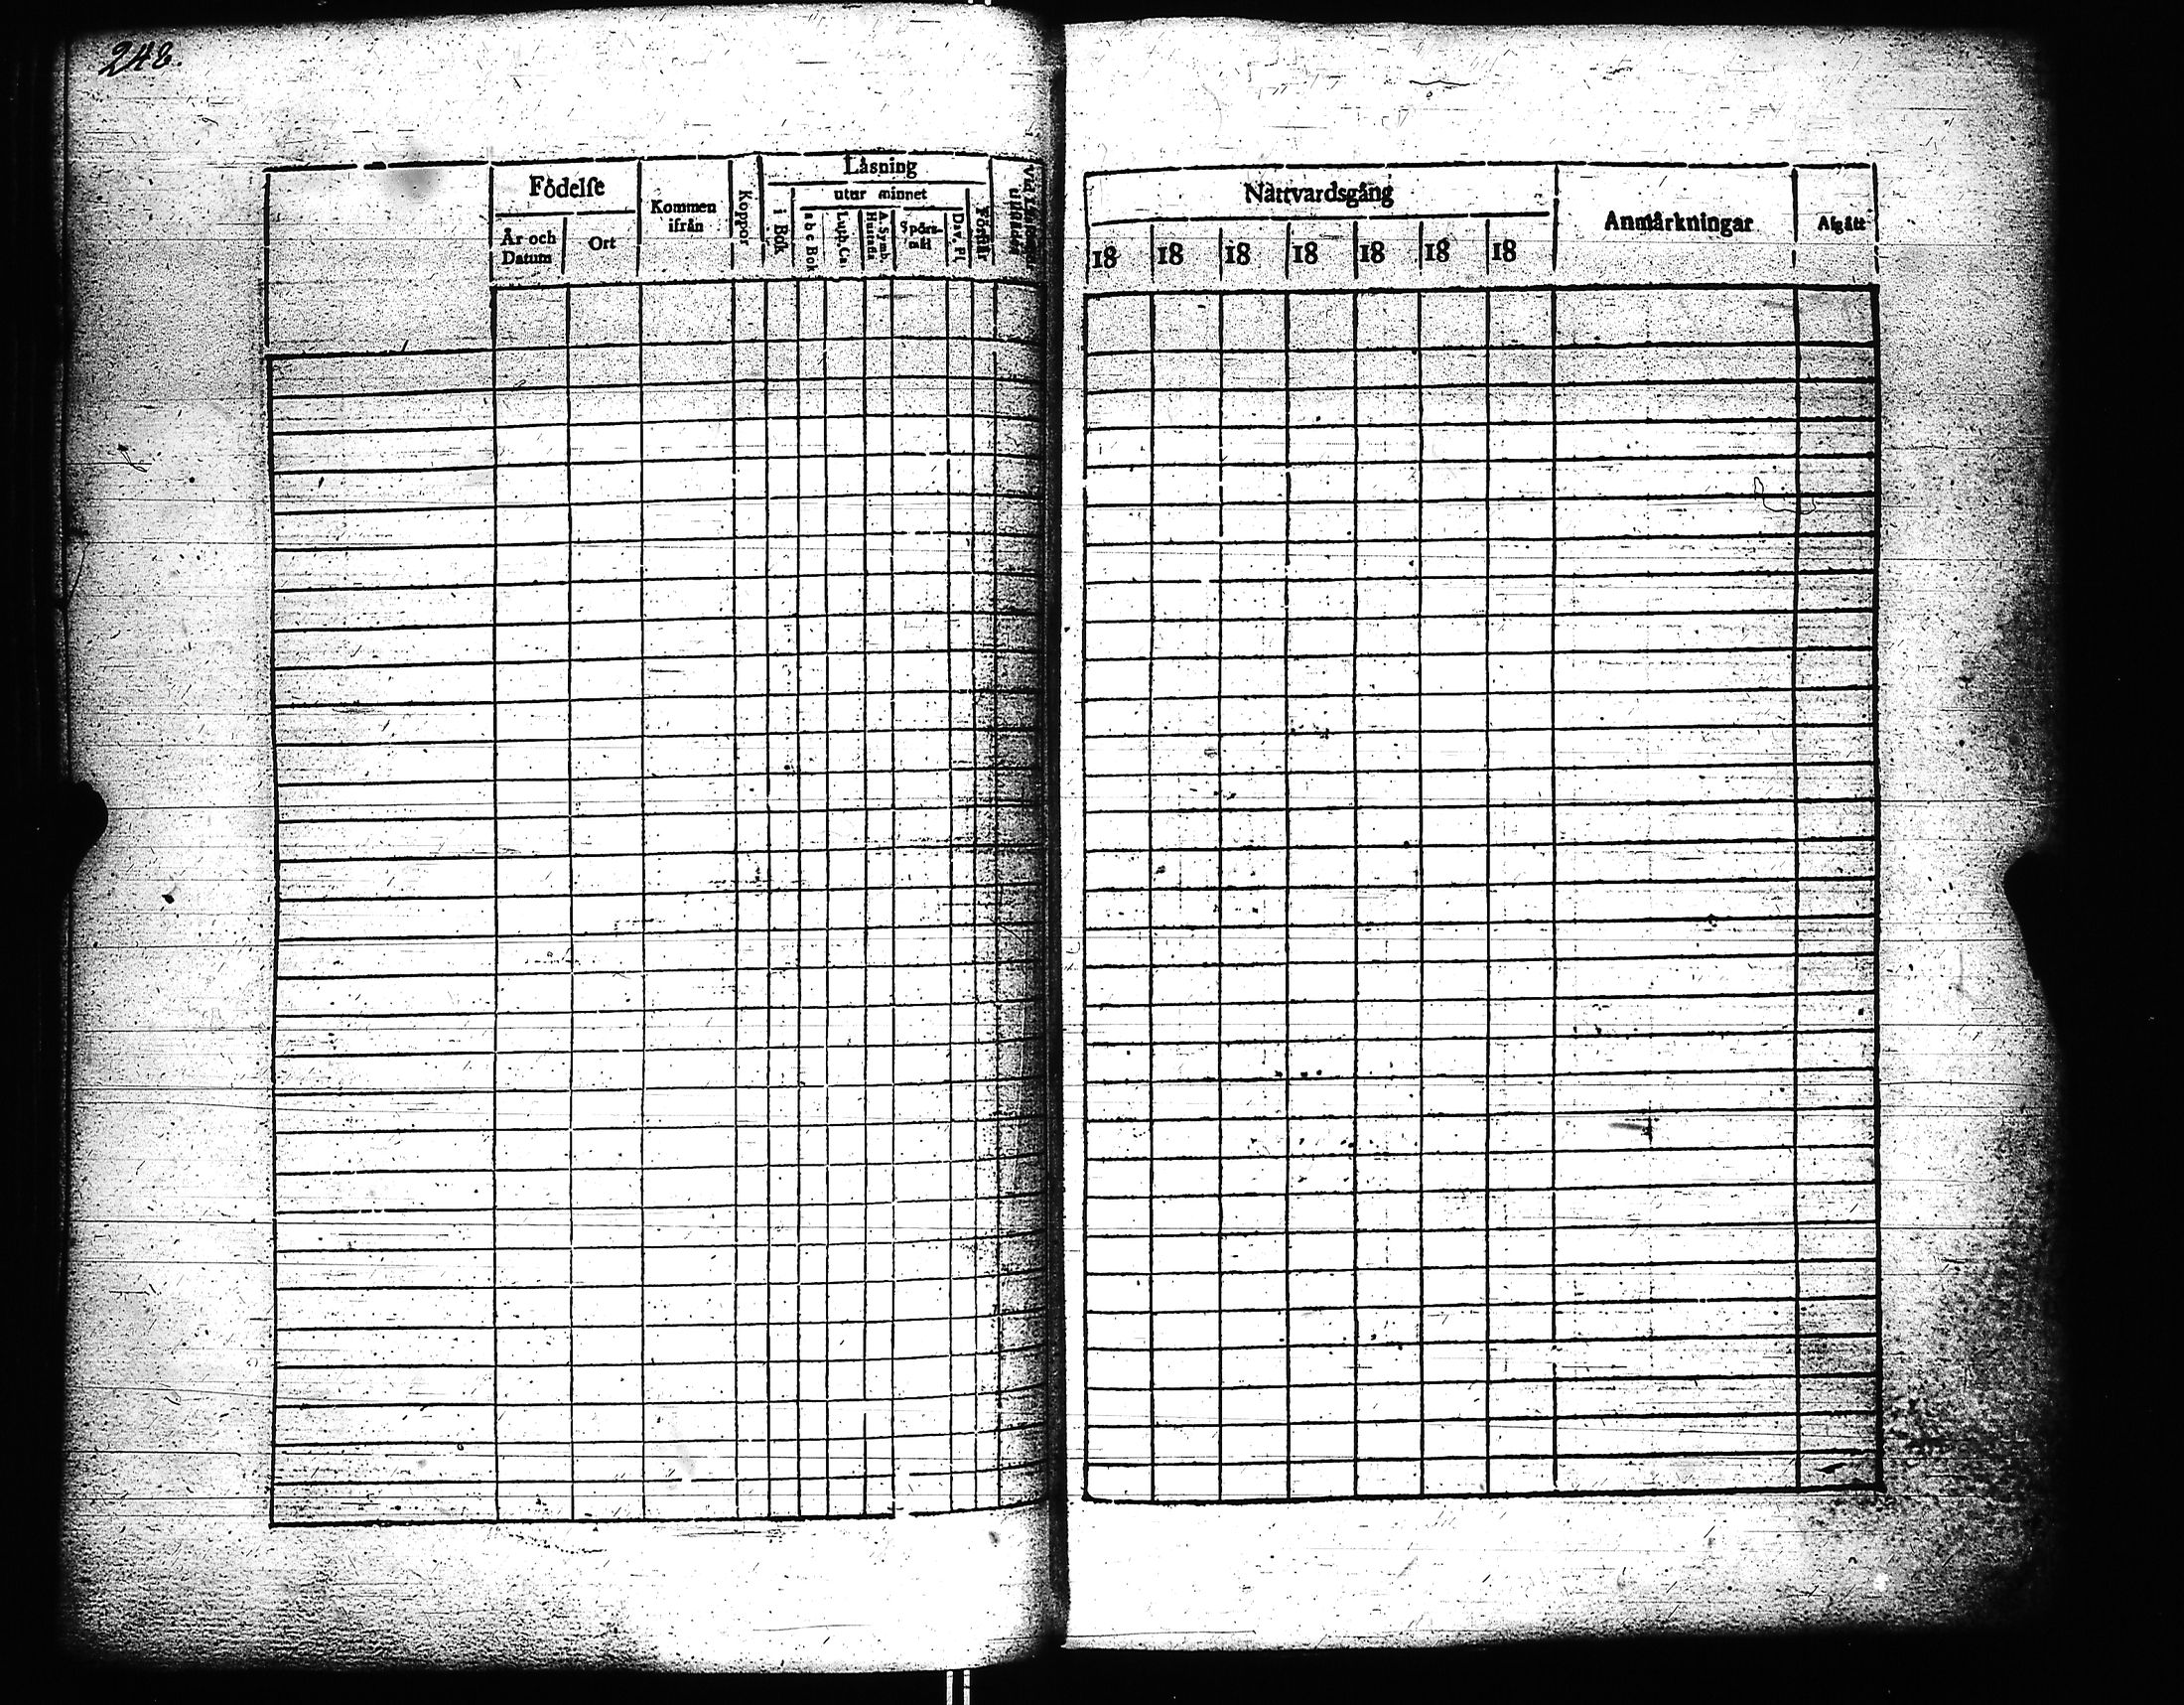 248.
Födelse
År och Datum
Ort
Kommen ifrån
Koppor
Läsning
i Bok
utur minnet
a b c Bok
Luth. Ca
A. Symb.
Hustafla
Spörsmål
Dav. Ps
Förstår
Nattvardsgång
18 18 18 18 18 18 18
Anmärkningar
Afgått